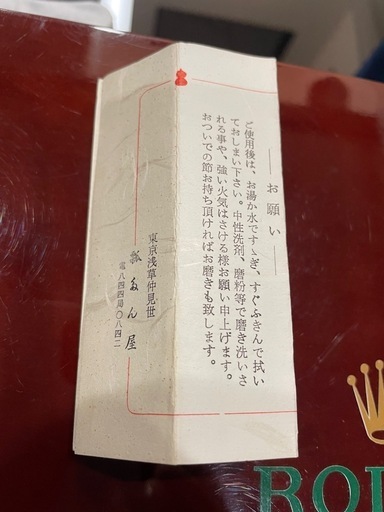 ―お願い―
ご使用後は、お湯か水ですゝぎ、すぐふきんで拭い
ておしまい下さい。中性洗剤、磨粉等で磨き洗いさ
れる事や、強い火気はさける様お願い申上げます。
おついでの節お持ち頂ければお磨きも致します。
東京浅草仲見世
瓢たん屋
電八四四局〇八四二